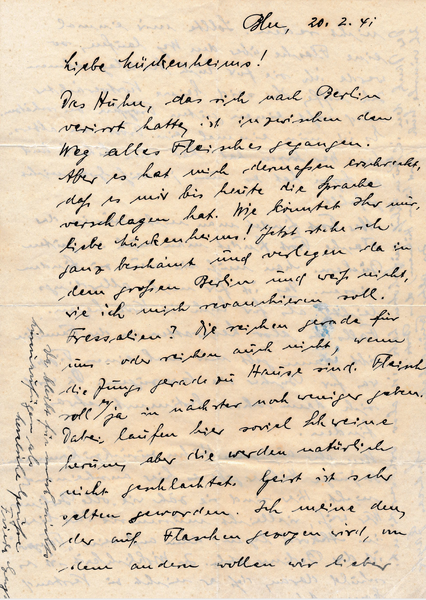 Bln, 20. 2. 41
Liebe Kückenheims!
Das Huhn, das sich nach Berlin
verirrt hatte, ist inzwischen den
Weg alles Fleisches gegangen.
Aber es hat mich dermaßen erschreckt,
daß es mir bis heute die Sprache
verschlagen hat. Wie konntet Ihr nur,
liebe Kückenheims! Jetzt stehe ich
ganz beschämt und verlegen da in
dem großen Berlin und weiß nicht,
wie ich mich revanchieren soll.
Fressalien? Die reichen gerade für
uns oder reichen auch nicht, wenn
die Jungs gerade zu Hause sind. Fleisch
soll es ja in nächster noch weniger geben.
Dabei laufen hier soviel Schweine
herum, aber die werden natürlich
nicht geschlachtet. Geist ist sehr
selten geworden. Ich meine den,
der auf Flaschen gezogen wird, von
dem andern wollen wir lieber